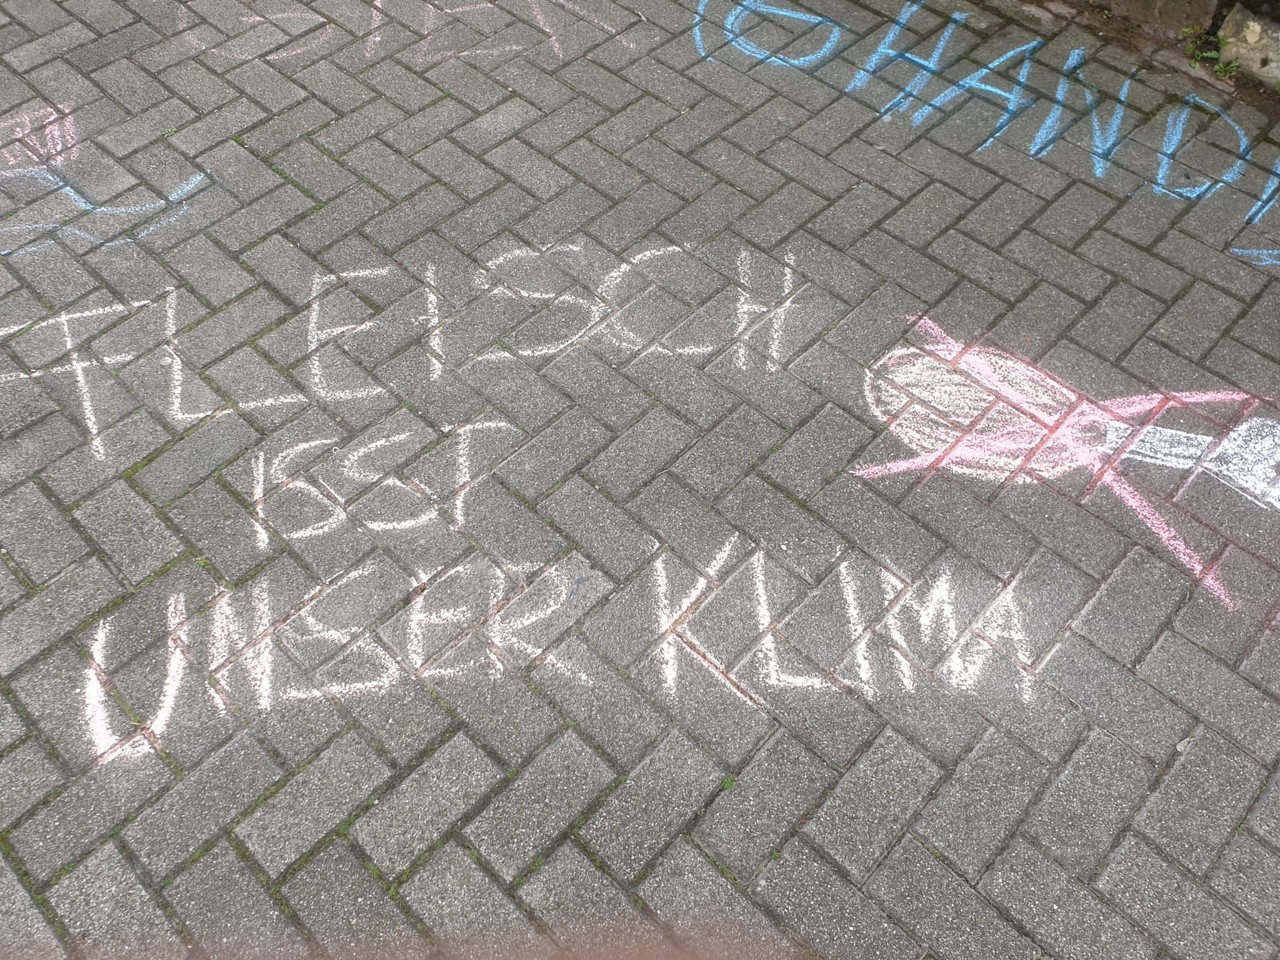 HAND
FLEISCH
ISST
UNSER KLIMA